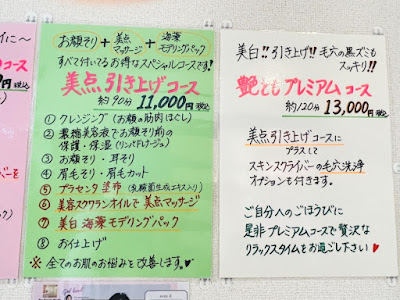 お顔そり + 美点マッサージ + 海藻モデリングパック
すべて付いてるお得なスペシャルコースです!
美点 引き上げコース
約90分 11,000円 税込
① クレンジング (お顔の筋肉ほぐし)
② 最糖美容液でお顔そり前の
保護・保湿 (リンパドレナージュ)
③ お顔そり・耳そり
④ 眉毛そり・眉毛カット
⑤ プラセンタ塗布 (乳酸菌生成エキス入り)
⑥ 美容スクワランオイルで美点マッサージ
⑦ 美白 海藻モデリングパック
⑧ お仕上げ
※ 全てのお肌のお悩みを改善します。♥
美白!! 引き上げ!! 毛穴の黒ズミも
スッキリ!!
艶とも プレミアム コース
約120分 13,000円 税込
美点引き上げコースに
プラスして
スキンスクライバーの毛穴洗浄
オプションも付きます。
ご自分へのごほうびに
是非プレミアムコースで贅沢な
リラックスタイムをお過ごし下さい♥